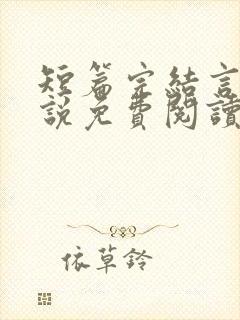 短篇完結言
說免費閱讀
依草鈴